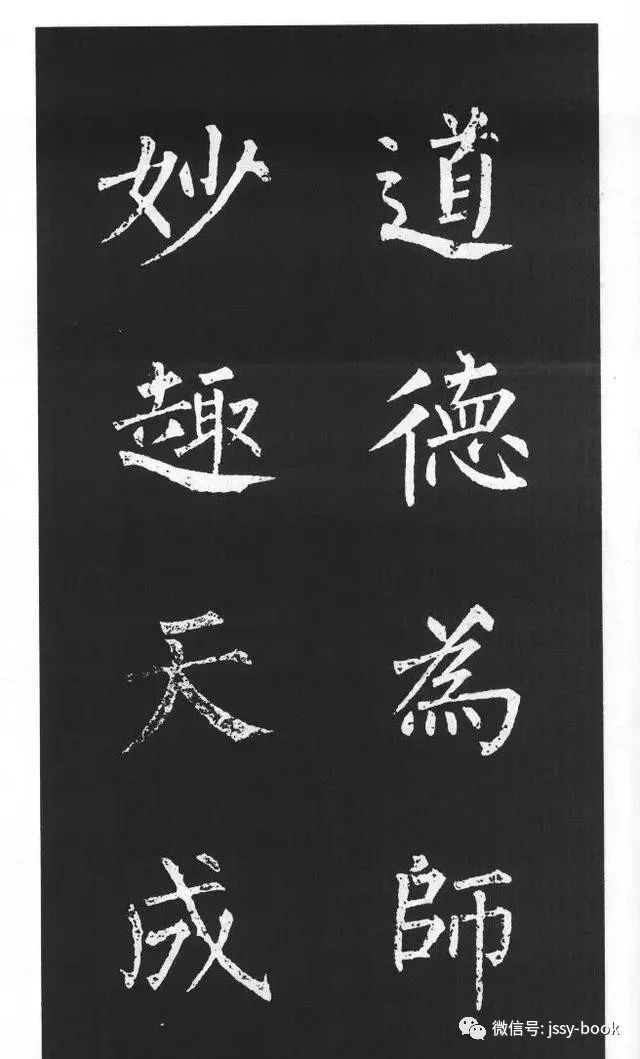 道德為師
妙趣天成
微信号: jssy-book